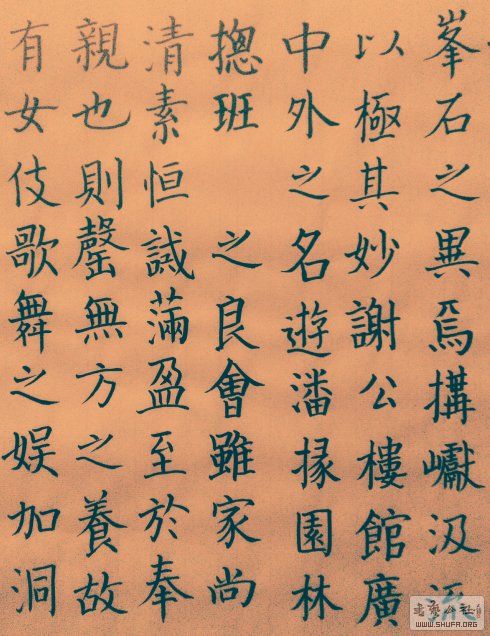 峯石之異焉搆巘汲流
以極其妙謝公樓館廣
中外之名遊潘掾園林
揔班之良會雖家尚
清素恒誡滿盈至於奉
親也則罄無方之養故
有女伎歌舞之娱加洞
WWW.SHUFA.ORG